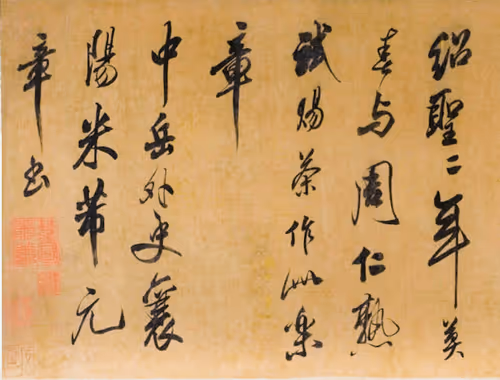 紹聖二年莫
春与周仁熟
試賜茶作此樂
章
中岳外史襄
陽米芾元
章書